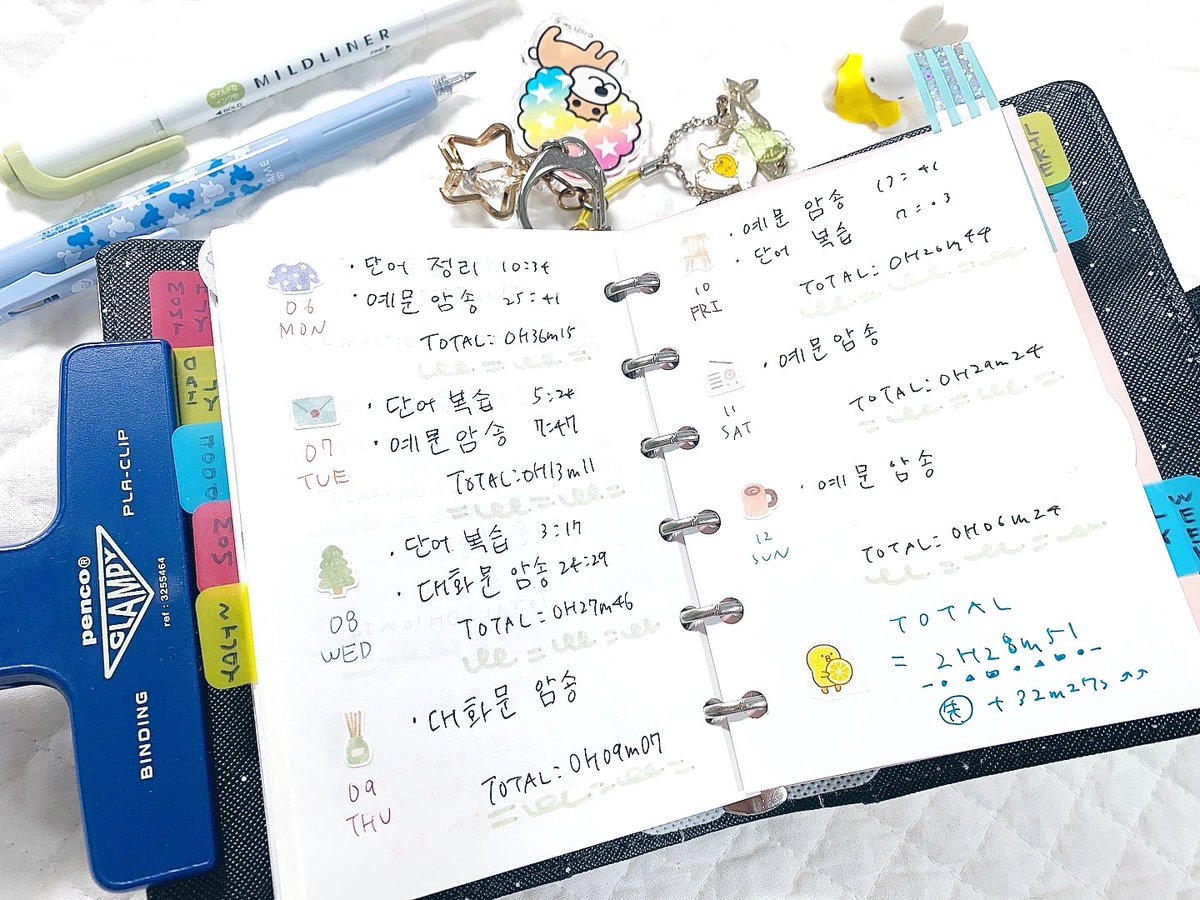 MILDLINER
FINE
BOLD
penco®
CLAMPY
PLA-CLIP
BINDING
ref : 3255464
· 단어 정리 10:34
· 예문 암송 25:41
06
MON
TOTAL: 0H36m15
· 단어 복습 5:24
· 예문 암송 7:47
07
TUE
TOTAL: 0H13m11
· 단어 복습 3:17
· 대화문 암송 24:29
08
WED
TOTAL: 0H27m46
· 대화문 암송
09
THU
TOTAL: 0H09m07
· 예문 암송
· 단어 복습
10
FRI
TOTAL: 0H26m44
· 예문 암송
11
SAT
TOTAL: 0H29m24
· 예문 암송
12
SUN
TOTAL: 0H06m24
TOTAL
= 2H28m51
+ 32m27s